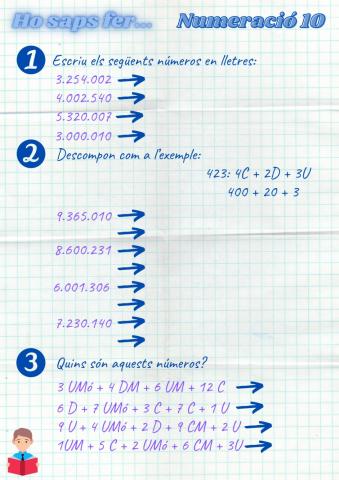 Ho saps fer... Numeració 10
1 Escriu els següents números en lletres:
3.254.002
4.002.540
5.320.007
3.000.010
2 Descompon com a l'exemple:
423: 4C + 2D + 3U
400 + 20 + 3
9.365.010
8.600.231
6.001.306
7.230.140
3 Quins són aquests números?
3 UMó + 4 DM + 6 UM + 12 C
6 D + 7 UMó + 3 C + 7 C + 1 U
9 U + 4 UMó + 2 D + 9 CM + 2 U
1UM + 5 C + 2 UMó + 6 CM + 3U